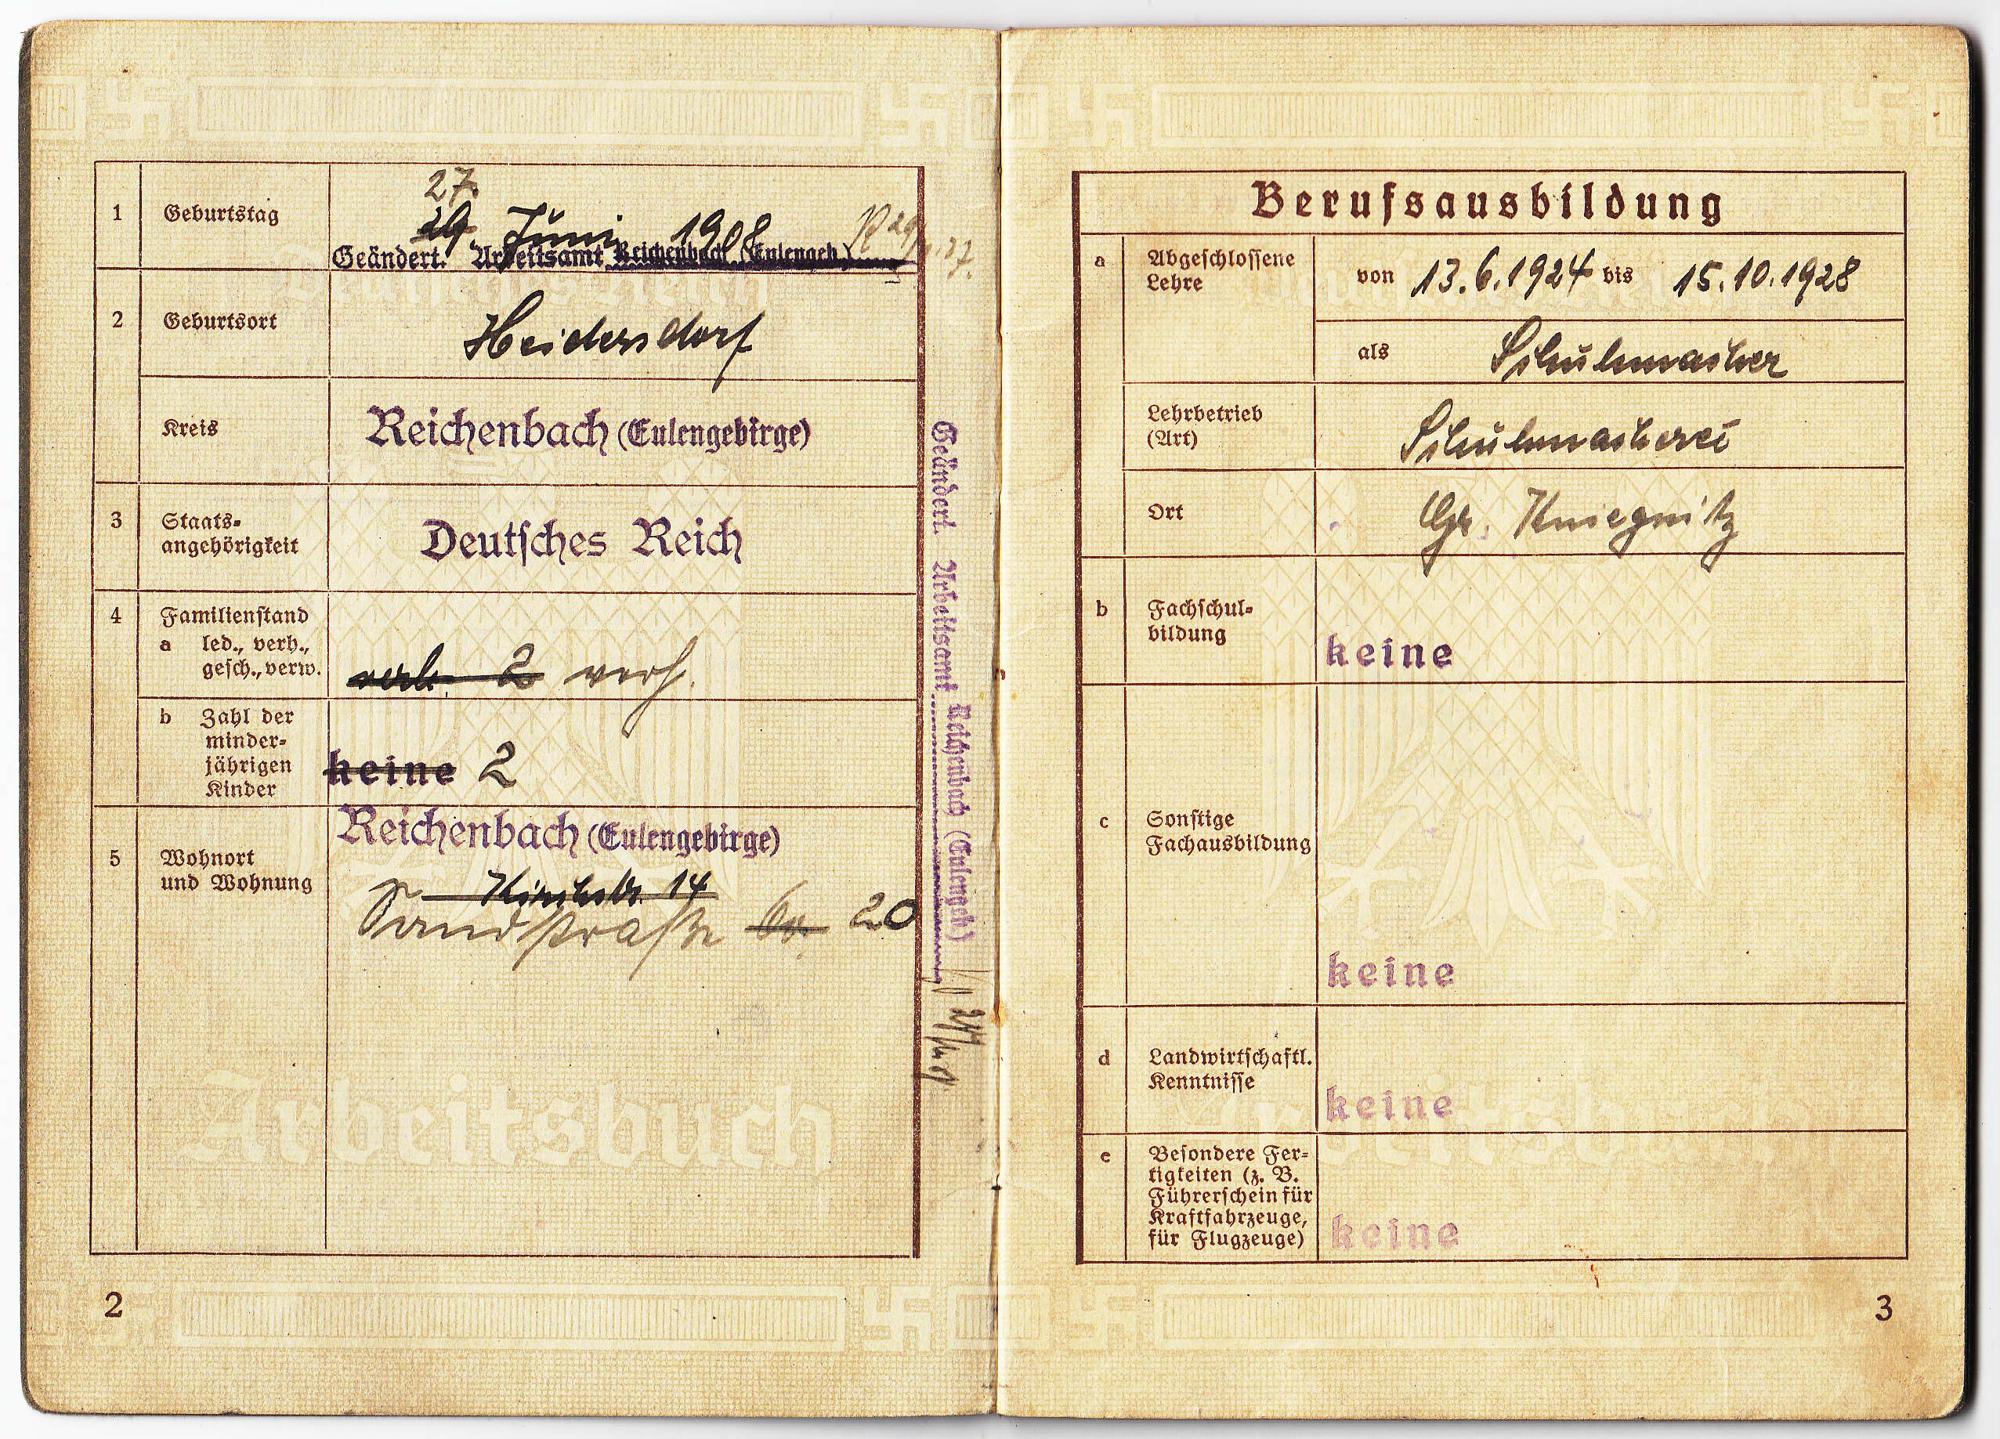 1 Geburtstag
27.
29. Juni 1908
Geändert. Arbeitsamt Reichenbach (Eulengeb.)
2 Geburtsort Heidersdorf
Kreis Reichenbach (Eulengebirge)
3 Staats-
angehörigkeit Deutsches Reich
4 Familienstand
a led., verh.,
gesch., verw. verh. 2 verh.
b Zahl der
minder-
jährigen
Kinder keine 2
5 Wohnort
und Wohnung
Reichenbach (Eulengebirge)
Kirchstr. 14
Sandstraße 20
Geändert. Arbeitsamt Reichenbach (Eulengeb)
Arbeitsbuch
2
Berufsausbildung
a Abgeschlossene
Lehre
von 13.6.1924 bis 15.10.1928
als Schuhmacher
Lehrbetrieb
(Art) Schuhmacherei
Ort Gr. Kniegnitz
b Fachschul-
bildung keine
c Sonstige
Fachausbildung keine
d Landwirtschaftl.
Kenntnisse keine
e Besondere Fer-
tigkeiten (z. B.
Führerschein für
Kraftfahrzeuge,
für Flugzeuge) keine
3